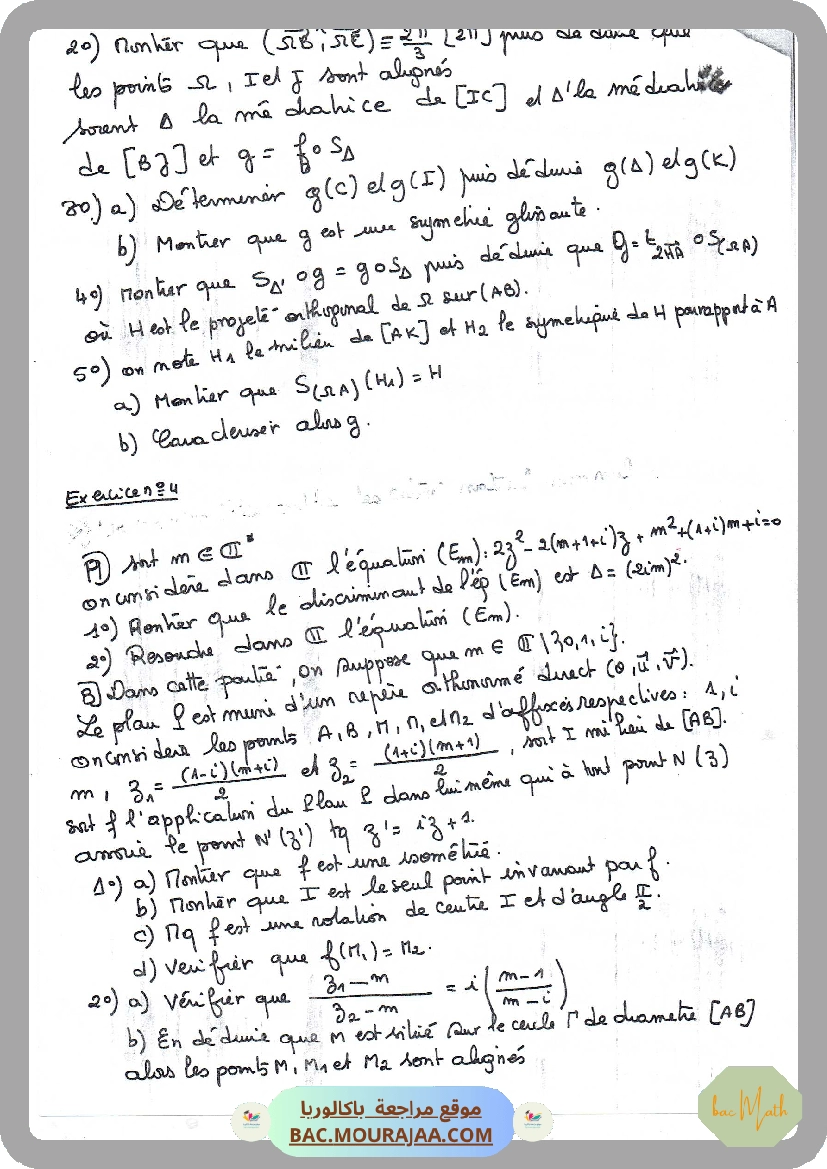 2°) Montrer que (ΩB, ΩC) ≡ 2π/3 [2π] puis déduire que
les points Ω, I et J sont alignés
soient Δ la médiatrice de [IC] et Δ' la médiatrice
de [BJ] et g = f o SΔ
3°) a) Déterminer g(C) et g(I) puis déduire g(Δ) et g(K)
b) Montrer que g est une symétrie glissante.
4°) Montrer que SΔ' o g = g o SΔ puis déduire que g = t 2HA o S(ΩA)
où H est le projeté orthogonal de Ω sur (AB).
5°) on note H1 le milieu de [AK] et H2 le symétrique de H par rapport à A
a) Montrer que S(ΩA) (H1) = H
b) Caractériser alors g.
Exercice n° 4
A) soit m ∈ ℂ*
on considère dans ℂ l'équation (Em): 2z² - 2(m+1+i)z + m² + (1+i)m + i = 0
1°) Montrer que le discriminant de l'éq (Em) est Δ = (2im)².
2°) Resoudre dans ℂ l'équation (Em).
B) Dans cette partie, on suppose que m ∈ ℂ \ {0, 1, i}.
Le plan P est muni d'un repère orthonormé direct (O, u, v).
on considère les points A, B, M, M1 et M2 d'affixes respectives : 1, i
m, z1 = (1-i)(m+i)/2 et z2 = (1+i)(m+1)/2, soit I milieu de [AB].
soit f l'application du Plan P dans lui même qui à tout point N (z)
associe le point N'(z') tq z' = iz + 1.
1°) a) Montrer que f est une isométrie.
b) Montrer que I est le seul point invariant par f.
c) Mq f est une rotation de centre I et d'angle π/2.
d) Verifier que f(M1) = M2.
2°) a) Vérifier que (z1 - m)/(z2 - m) = i ((m - 1)/(m - i))
b) En déduire que M est situé sur le cercle Γ de diametre [AB]
alors les points M, M1 et M2 sont alignés
موقع مراجعة باكالوريا
BAC.MOURAJAA.COM
bac Math